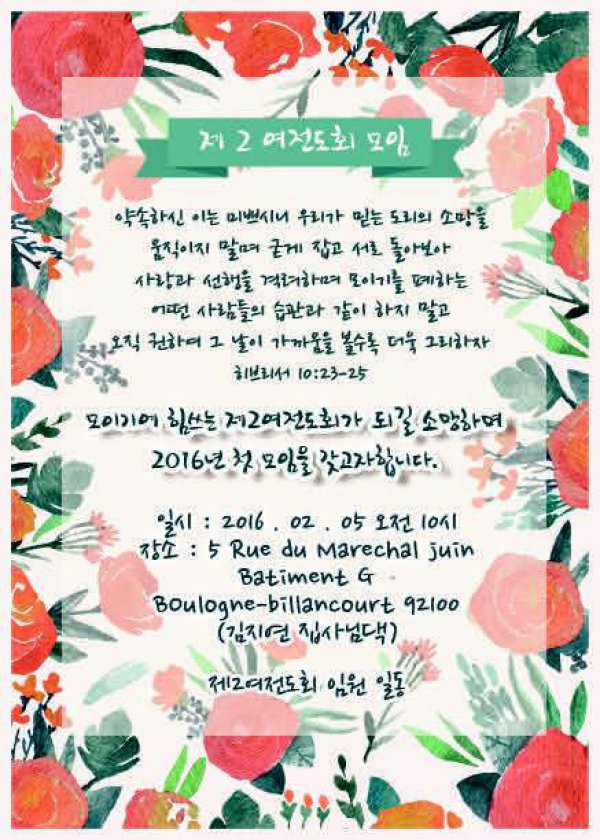 제 2 여전도회 모임
약속하신 이는 미쁘시니 우리가 믿는 도리의 소망을
움직이지 말며 굳게 잡고 서로 돌아보아
사랑과 선행을 격려하며 모이기를 폐하는
어떤 사람들의 습관과 같이 하지 말고
오직 권하여 그 날이 가까움을 볼수록 더욱 그리하자
히브리서 10:23-25
모이기에 힘쓰는 제2여전도회가 되길 소망하며
2016년 첫 모임을 갖고자합니다.
일시 : 2016 . 02 . 05 오전 10시
장소 : 5 Rue du Marechal juin
Batiment G
Boulogne-billancourt 92100
(김지연 집사님댁)
제2여전도회 임원 일동